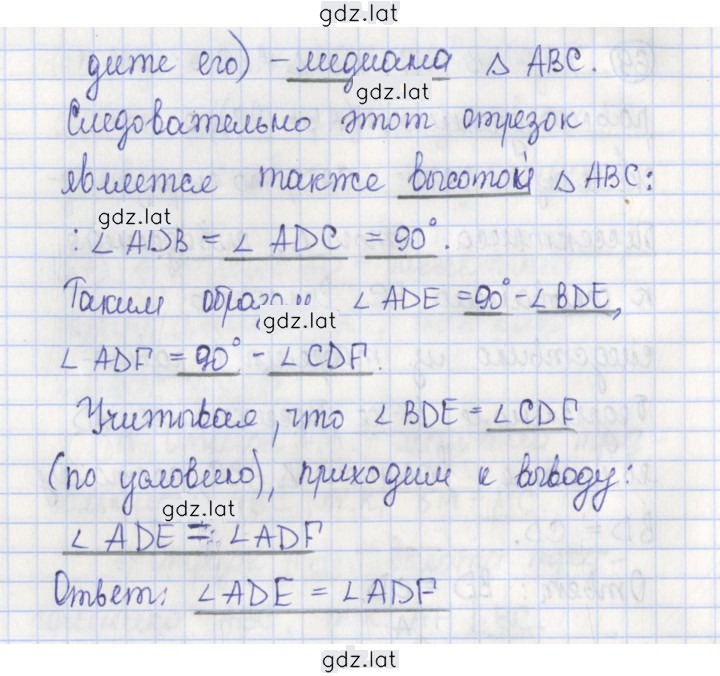 gdz.lat
дите его) – медиана △ ABC.
gdz.lat
Следовательно этот отрезок
является также высотой △ ABC:
gdz.lat
: ∠ ADB = ∠ ADC = 90°.
Таким образом ∠ ADE = 90° – ∠ BDE,
gdz.lat
∠ ADF = 90° – ∠ CDF.
Учитывая, что ∠ BDE = ∠ CDF
(по условию), приходим к выводу:
gdz.lat
∠ ADE = ∠ ADF
Ответ: ∠ ADE = ∠ ADF
gdz.lat